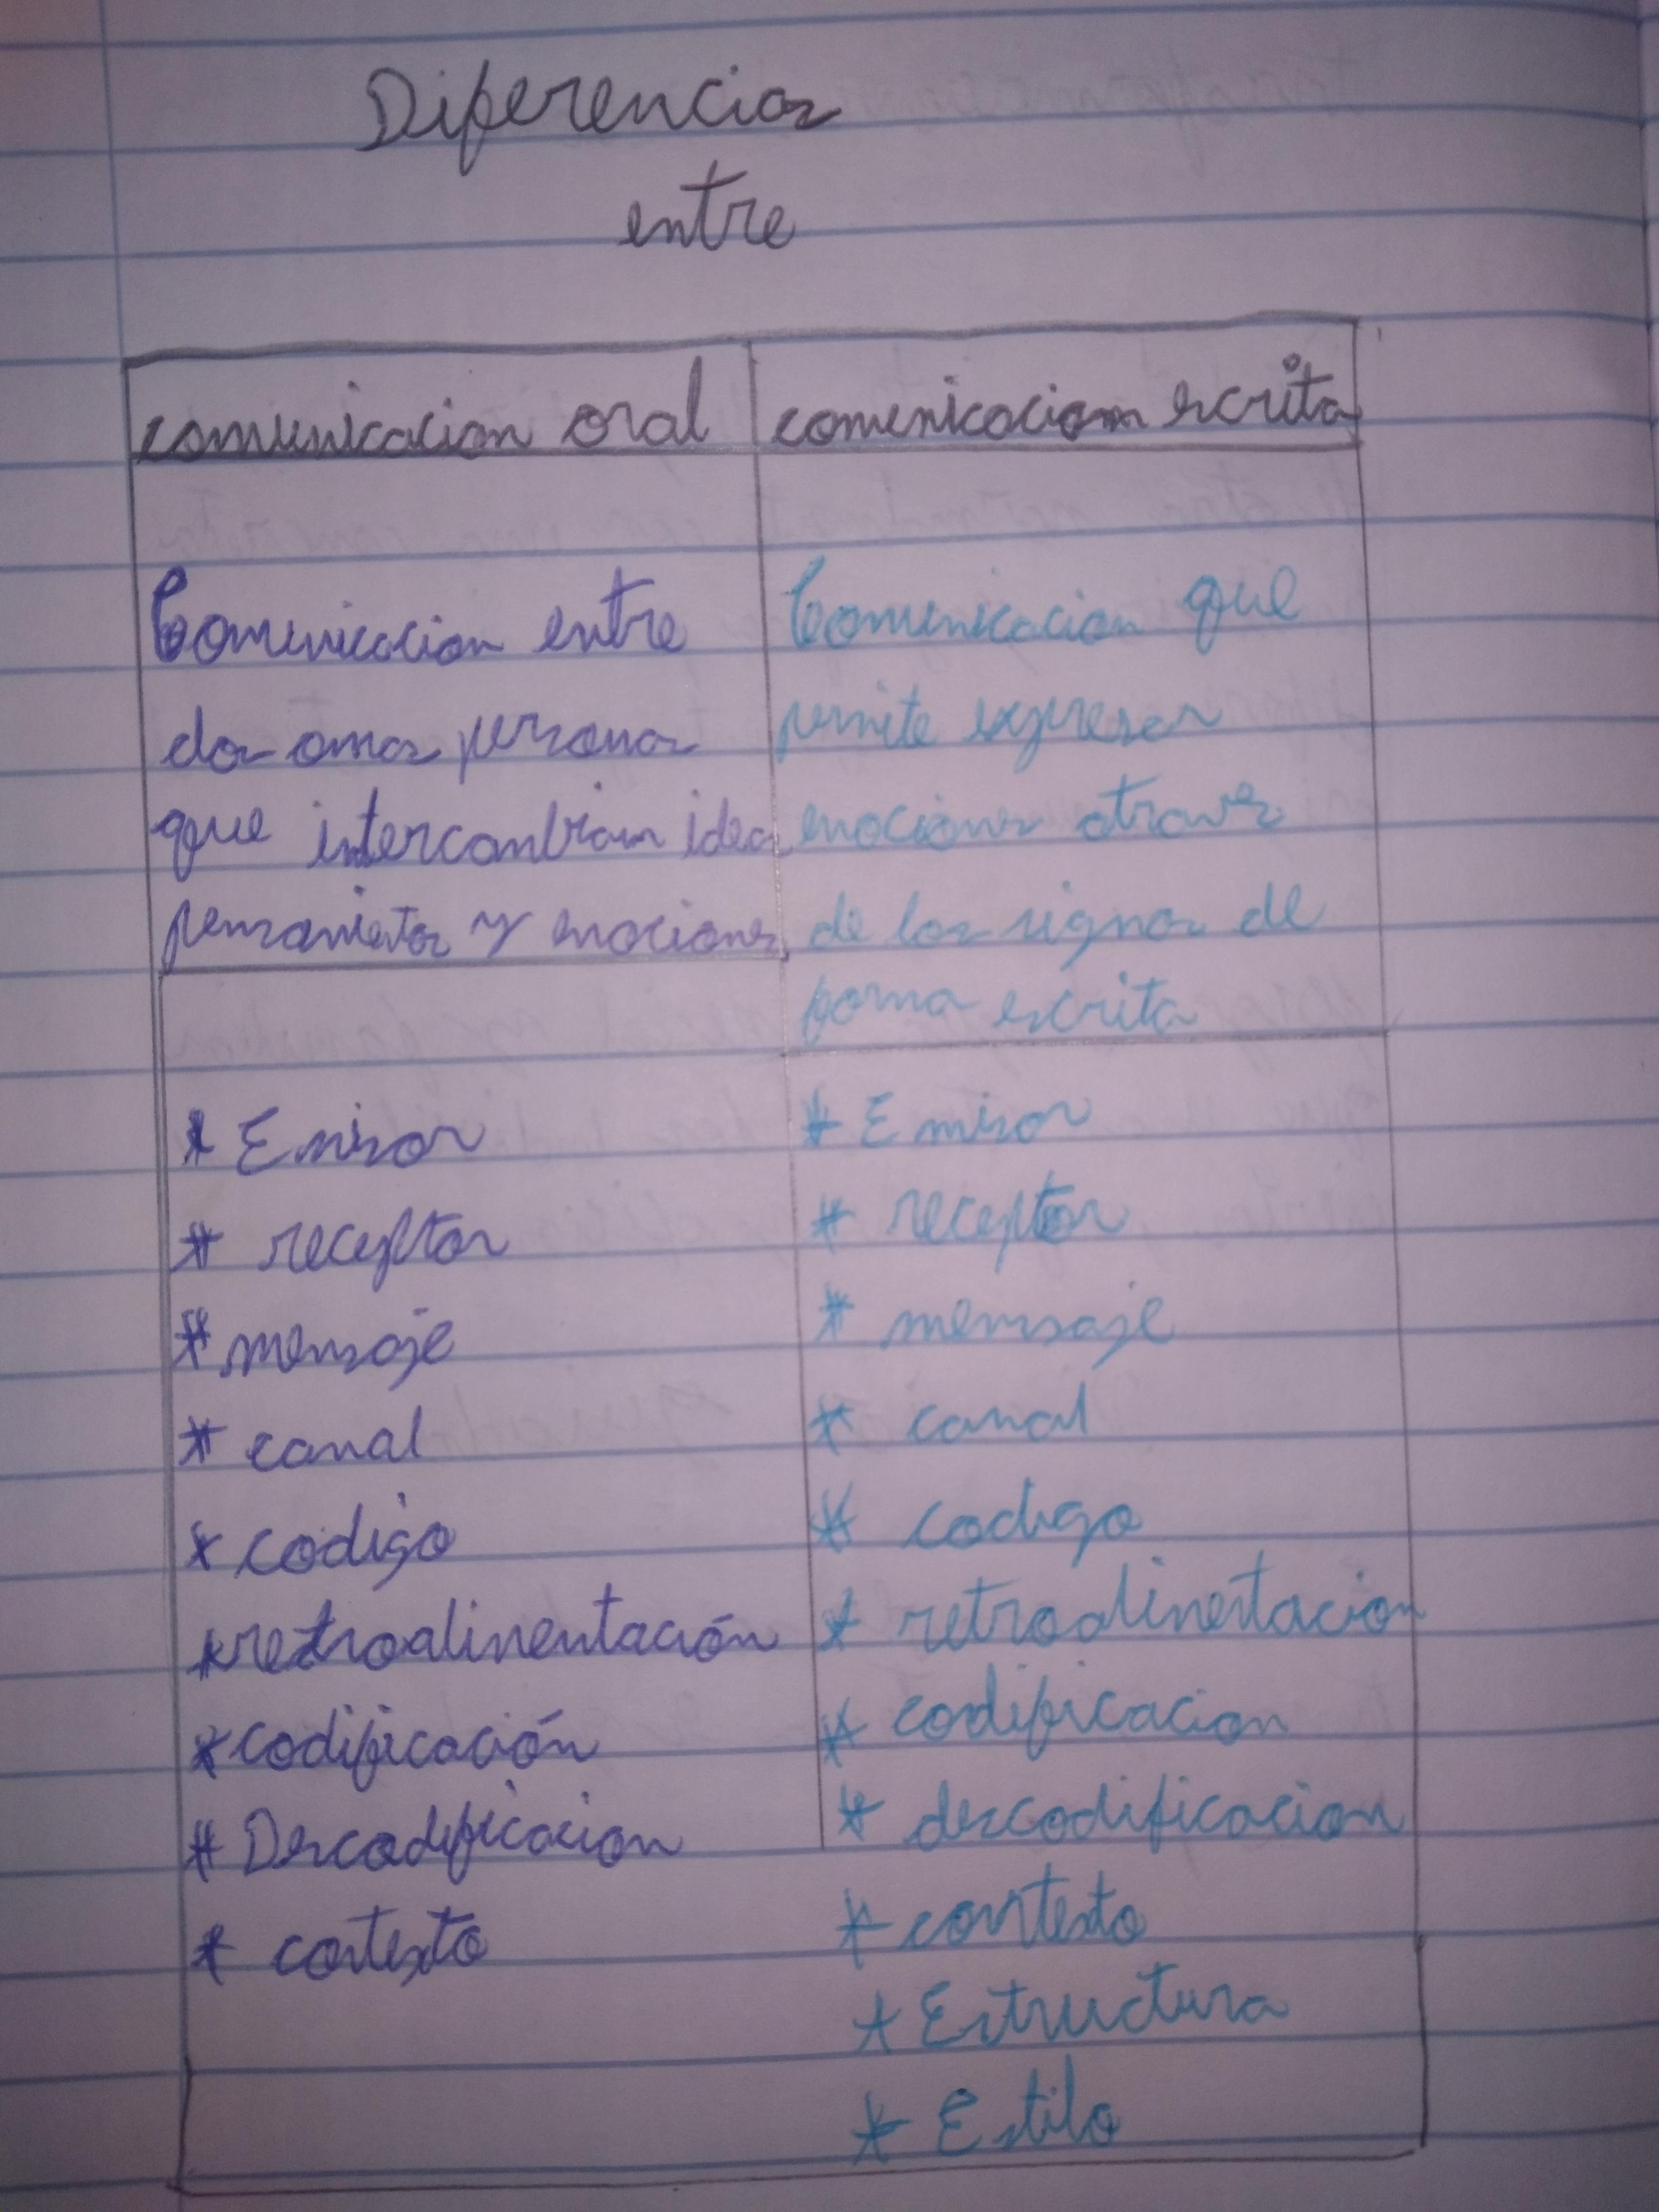 Diferencias
entre
comunicacion oral
comunicacion escrita
Comunicacion entre
dos omas personas
que intercambian idea
pensamientos y emociones
Comunicacion que
permite expresar
emociones atraves
de los signos de
forma escrita
* Emisor
* receptor
* mensaje
* canal
* codigo
* retroalimentación
* codificación
* Descodificacion
* contexto
* Emisor
* receptor
* mensaje
* canal
* codigo
* retroalimentacion
* codificacion
* descodificacion
* contexto
* Estructura
* Estilo